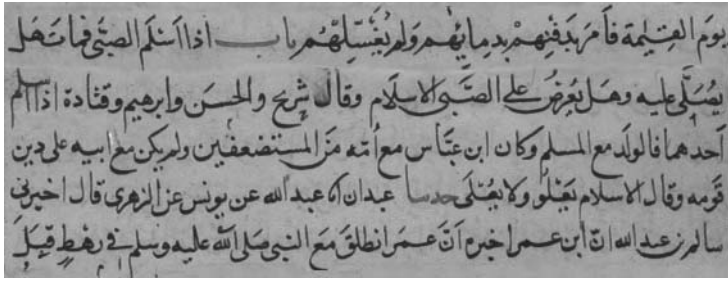 يوم القيمة فامر بدفنهم بدمايهم ولم يغسلهم باب اذا اسلم الصبى فمات هل
يصلى عليه وهل يعرض على الصبى الاسلام وقال شريح والحسن وابرهيم وقتادة اذا اسلم
احدهما فالولد مع المسلم وكان ابن عباس مع امه من المستضعفين ولم يكن مع ابيه على دين
قومه وقال الاسلام يعلو ولا يعلى حدسا عبدان انا عبد الله عن يونس عن الزهرى قال اخبرنى
سالم بن عبد الله ان ابن عمر اخبره ان عمر انطلق مع النبى صلى الله عليه وسلم فى رهط قبل